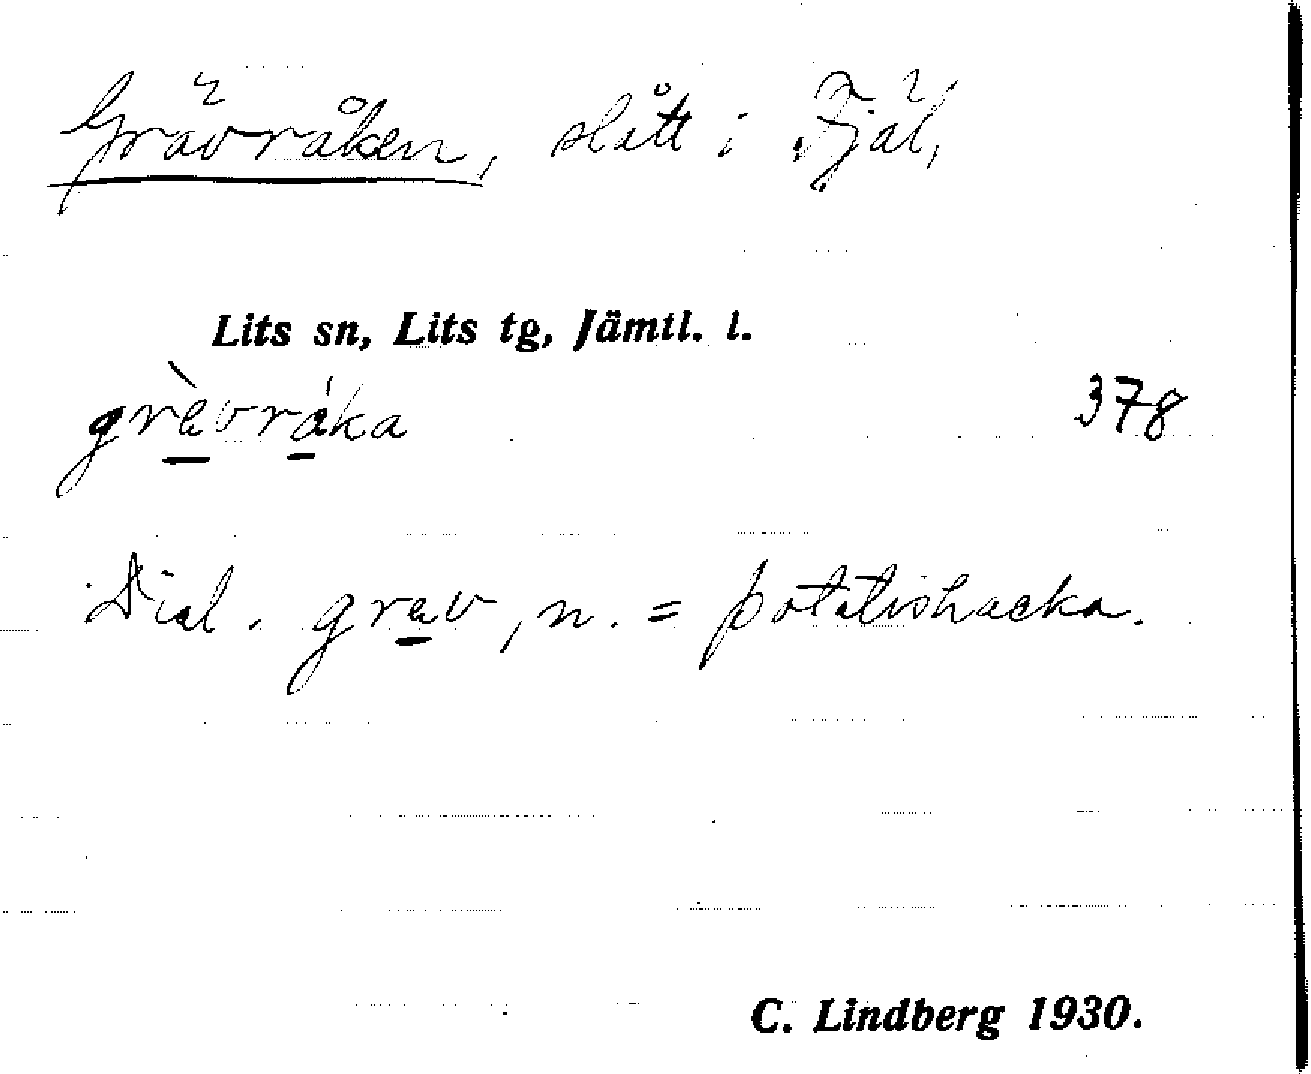 Grävråken, slått i Fjäl,
Lits sn, Lits tg, Jämtl. l.
grèvråka 378
Dial. grev, n. = potatishacka.
C. Lindberg 1930.